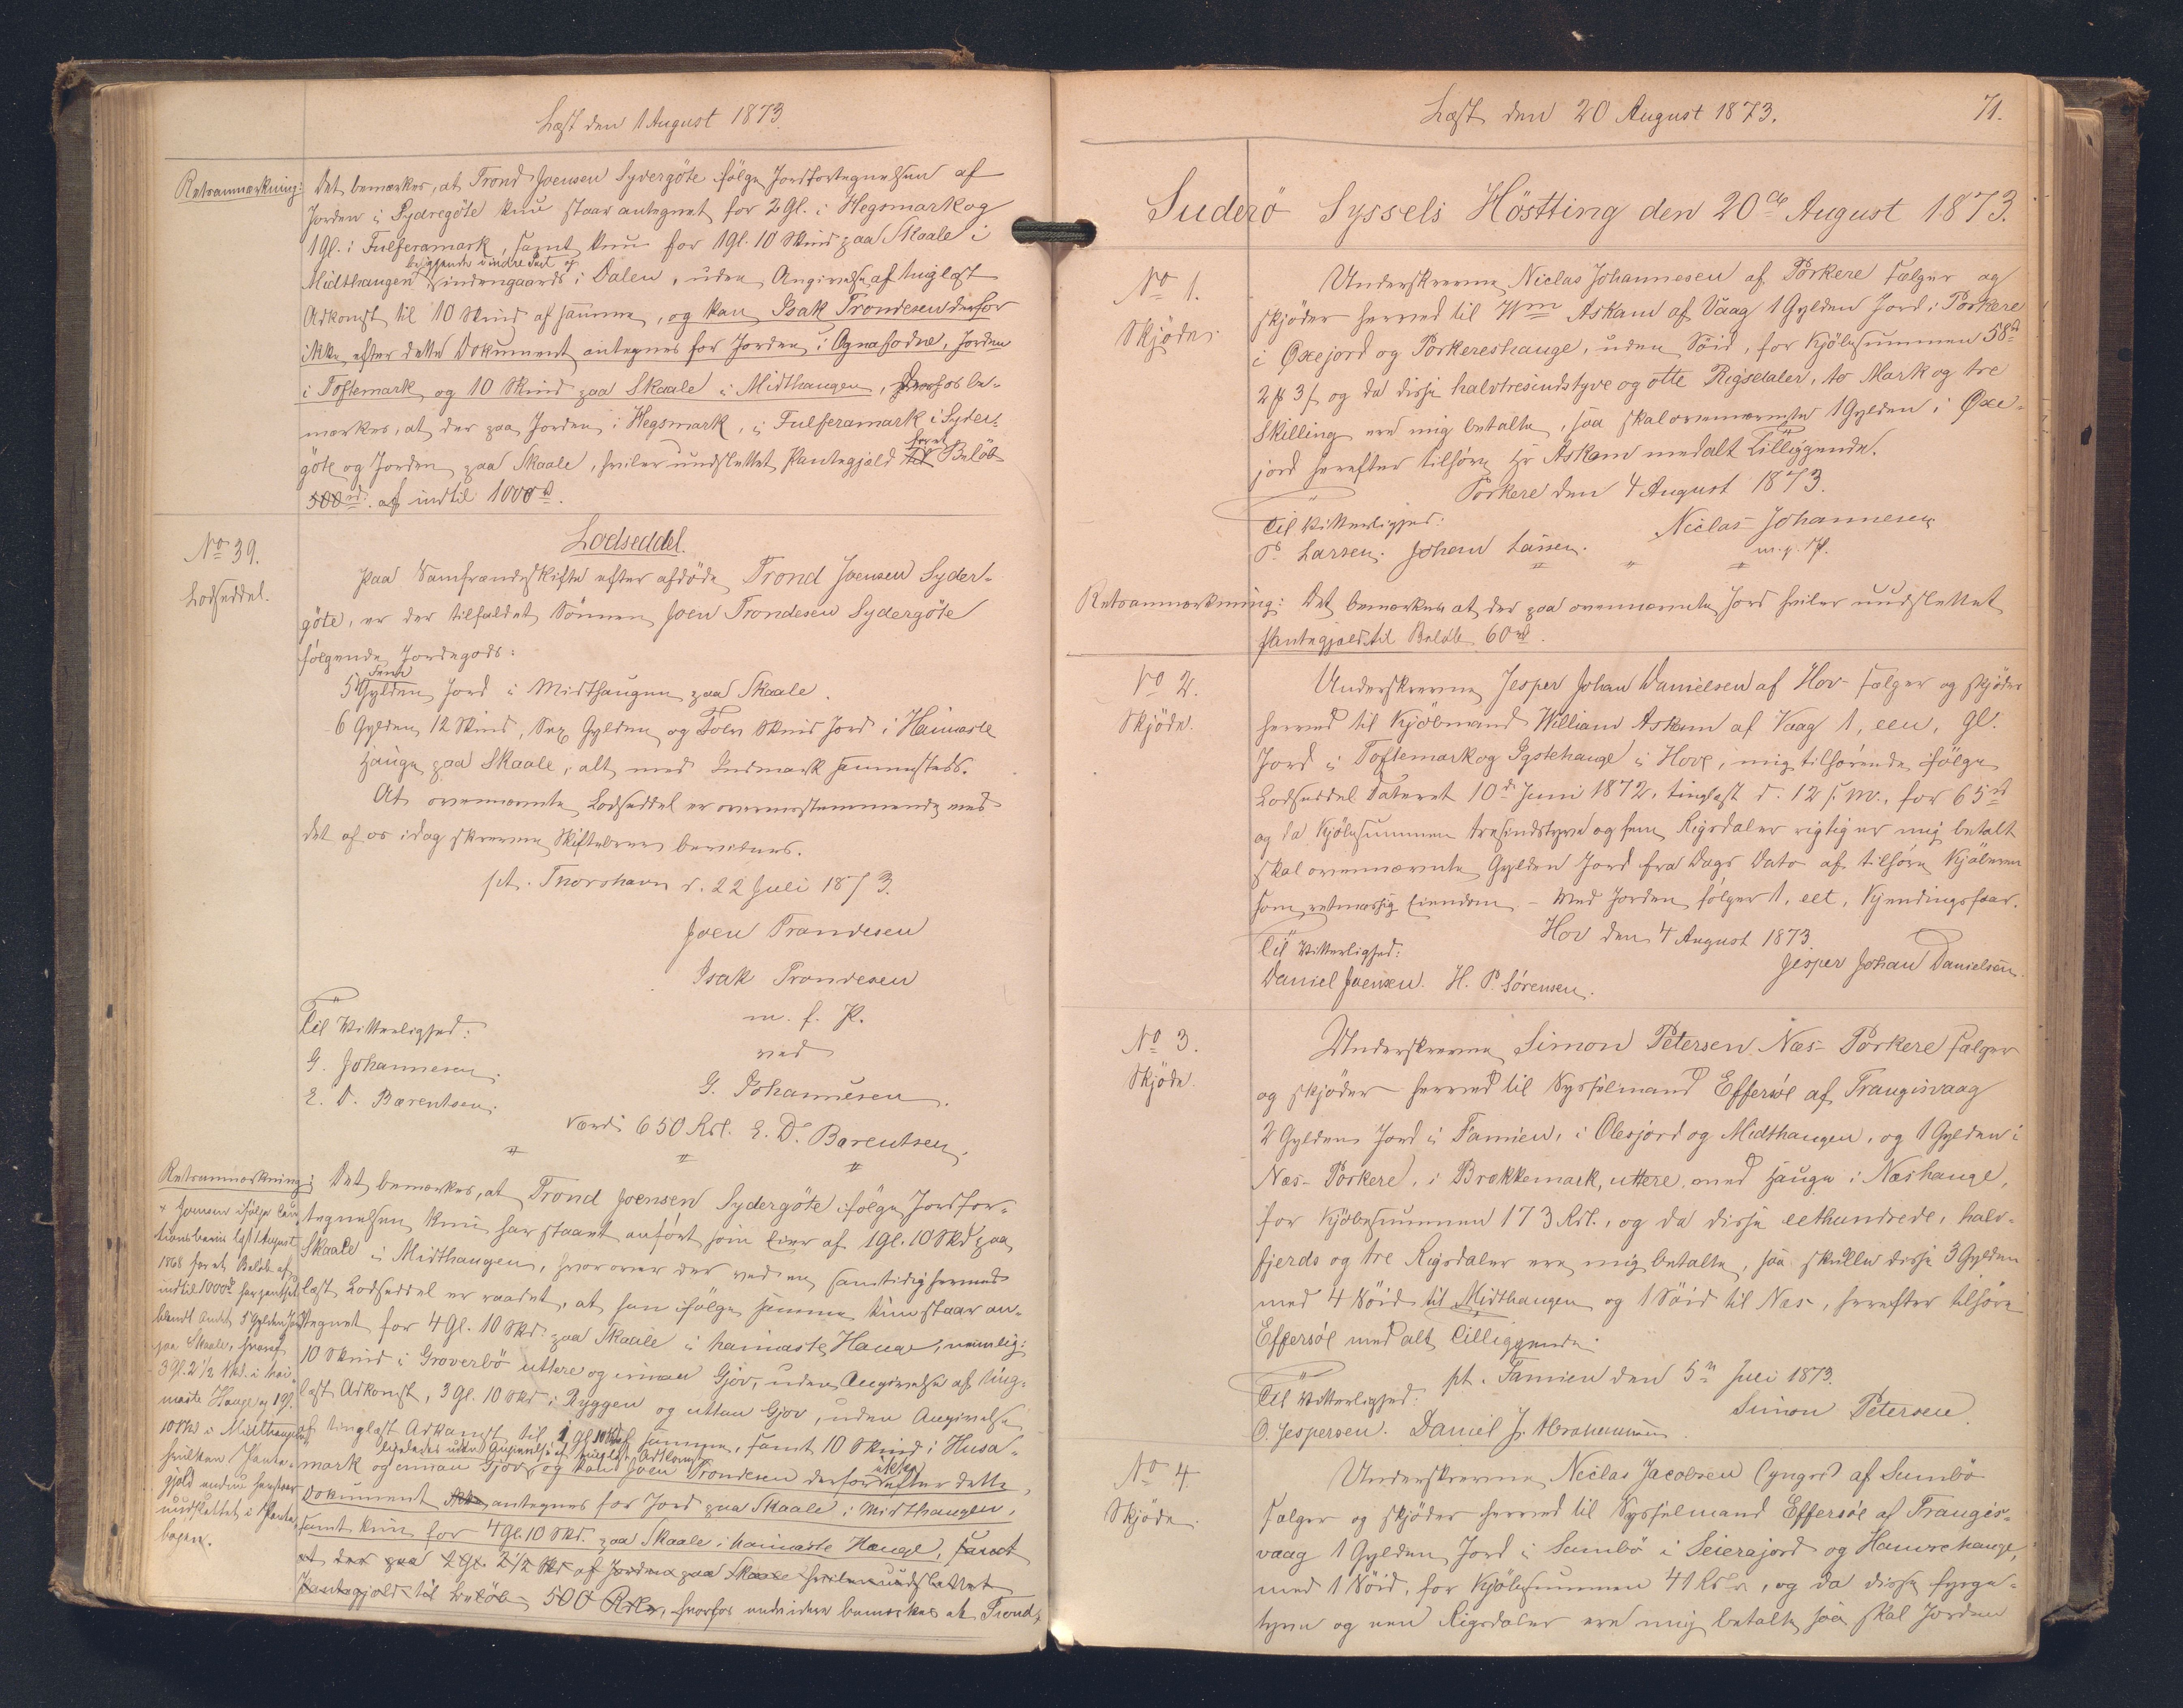 Læst den 1 August 1873.
Retsanmærkning:
Det bemærkes, at Trond Joensen Sydergöte ifölge Jordfortegnelsen af
Jorden i Sydregöte kun staar antegnet for 2 Gl. i Hegsmark og
1 Gl. i Fulferamark, samt kun for 1 Gl. 10 Skind paa Skaale i
beliggende indre Deel af
Midthaugen Vindengaards i Dalen, uden Angivelse af tinglæst
Adkomst til 10 Skind af samme, og kan Isak Trondesen derfor
ikke efter dette Dokument antegnes for Jorden i Ognafodne, Jorden
i Toftemark og 10 Skind paa Skaale i Midthaugen, Derfor be-
mærkes, at der paa Jorden i Hegsmark, i Fulferamark i Syder-
göte og Jorden paa Skaale, hviler uudslettet Pantegjæld til for et Belöb
500 rd. af indtil 1000 rd.
No 39.
Lodseddel.
Lodseddel.
Paa Samfrændeskifte efter afdöde Trond Joensen Syder-
göte, er der tilfaldet Sönnen Joen Trondesen Sydergöte
fölgende Jordegods:
5 Fem Gylden Jord i Midthaugen paa Skaale.
6 Gylden 12 Skind, Sex Gylden og Tolv Skind Jord i Haimaste
Hauge paa Skaale, alt med Indmark sammesteds.
At ovennævnte Lodseddel er overensstemmende med
det af os idag skrevne Skiftebrev bevidnes.
pt. Thorshavn d. 22 Juli 1873.
Joen Trondesen
Isak Trondesen
m. f. P.
ved
G. Johannesen.
Til Vitterlighed:
G. Johannesen.
E. D. Bærentsen.
Værdi 650 Rdl. E. D. Bærentsen.
Retsanmærkning:
Det bemærkes, at Trond Joensen Sydergöte ifölge Jordfor-
tegnelsen kun har staaet anfört som Eier af 1 Gl. 10 Skd paa
Skaale i Midthaugen, hvorover der ved en samtidig hermed
læst Lodseddel er raadet, at han ifölge samme kun staar an-
tegnet for 4 Gl. 10 Skd. paa Skaale i haimaste Hauge, nemlig:
10 Skind i Groverbö uttere og innan Gjov, uden Angivelse af ting-
læst Adkomst, 3 Gl. 10 Skd i Ryggen og uttan Gjov, uden Angivelse
af tinglæst Adkomst til 1 Gl 10 Skd af samme, samt 10 Skind i Husa-
ligeledes uden Angivelse af tinglæst Adkomst
mark og innan Gjov, og kan Joen Trondesen derfor ikke efter dette
Dokument ikke antegnes for Jord paa Skaale i Midthaugen,
samt kun for 4 Gl. 10 Skd. paa Skaale i haimaste Hauge, samt
at der paa 2 Gl. 2 1/2 Skd af Jorden paa Skaale hviler uudslettet
Pantegjæld til Belöb 500 Rdlr, hvorfor endvidere bemærkes at Trond
Joensen ifölge Cau-
tionsbevis læst 1 August
1868 for et Beløb af
indtil 1000 rd har pantsat
blandt Andet 5 Gylden Jord
paa Skaale, hvoraf
3 Gl. 2 1/2 Skd. i hai-
maste Hauge og 1 Gl.
10 Skd i Midthaugen
hvilken Pante-
gjæld endnu henstaar
uudslettet i Pante-
bogen.
Læst den 20 August 1873.
71.
Suderö Syssels Höstting den 20de August 1873.
No 1.
Skjöde.
Underskrevne Niclas Johannesen af Porkere sælger og
skjöder herved til Wm Askam af Vaag 1 Gylden Jord i Porkere
i Oxejord og Porkereshauge, uden Söid, for Kjöbesummen 58 rd
2 # 3 s og da disse halvtresindstyve og otte Rigsdaler, to Mark og tre
Skilling ere mig betalte, saa skal ovennævnte 1 Gylden i Oxe-
jord herefter tilhöre Hr Askam med alt Tilliggende.
Porkere den 4 August 1873.
Til Vitterlighed:
Niclas Johannesen
P. Larsen. Johan Larsen.
m. f. P.
Retsanmærkning: Det bemærkes at der paa ovennævnte Jord hviler uudslettet
Pantegjæld til Belöb 60 rd.
No 2.
Skjöde.
Underskrevne Jesper Johan Danielsen af Hov sælger og skjöder
herved til Kjöbmand William Askam af Vaag 1, een, Gl.
Jord i Toftemark og Ystehauge i Hove, mig tilhörende ifölge
Lodseddel dateret 10de Juni 1872, tinglæst d. 12 s. M., for 65 rd
og da Kjöbesummen tresindstyve og fem Rigsdaler rigtig er mig betalt
skal ovennævnte Gylden Jord fra Dags Dato af tilhöre Kjöberen
som retmæssig Eiendom – Med Jorden fölger 1, eet, Kjendingsfaar.
Hov den 4 August 1873.
Til Vitterlighed:
Jesper Johan Danielsen.
Daniel Joensen. H. P. Sörensen.
No 3.
Skjöde.
Underskrevne Simon Petersen Næs-Porkere sælger
og skjöder herved til Sysselmand Effersöe af Trangisvaag
2 Gylden Jord i Famien, i Olesjord og Midthaugen, og 1 Gylden i
Næs-Porkere, i Brokkemark, uttere, med Hauge i Næshauge,
for Kjöbesummen 173 Rdl., og da disse eethundrede, halv-
fjerds og tre Rigsdaler ere mig betalte, saa skulle disse 3 Gylden
med 4 Söid til Midthaugen og 1 Söid til Næs, herefter tilhöre
Effersöe med alt Tilliggende.
pt. Famien den 5te Juli 1873.
Til Vitterlighed:
Simon Petersen.
O. Jespersen. Daniel J. Abrahamsen.
No 4.
Skjöde.
Underskrevne Niclas Jacobsen (yngre) af Sumbö
sælger og skjöder herved til Sysselmand Effersöe af Trangis-
vaag 1 Gylden Jord i Sumbö i Seierajord og Hamrehauge,
med 1 Söid, for Kjöbesummen 41 Rdlr, og da disse fyrge-
tyve og een Rigsdaler ere mig betalte, saa skal Jorden